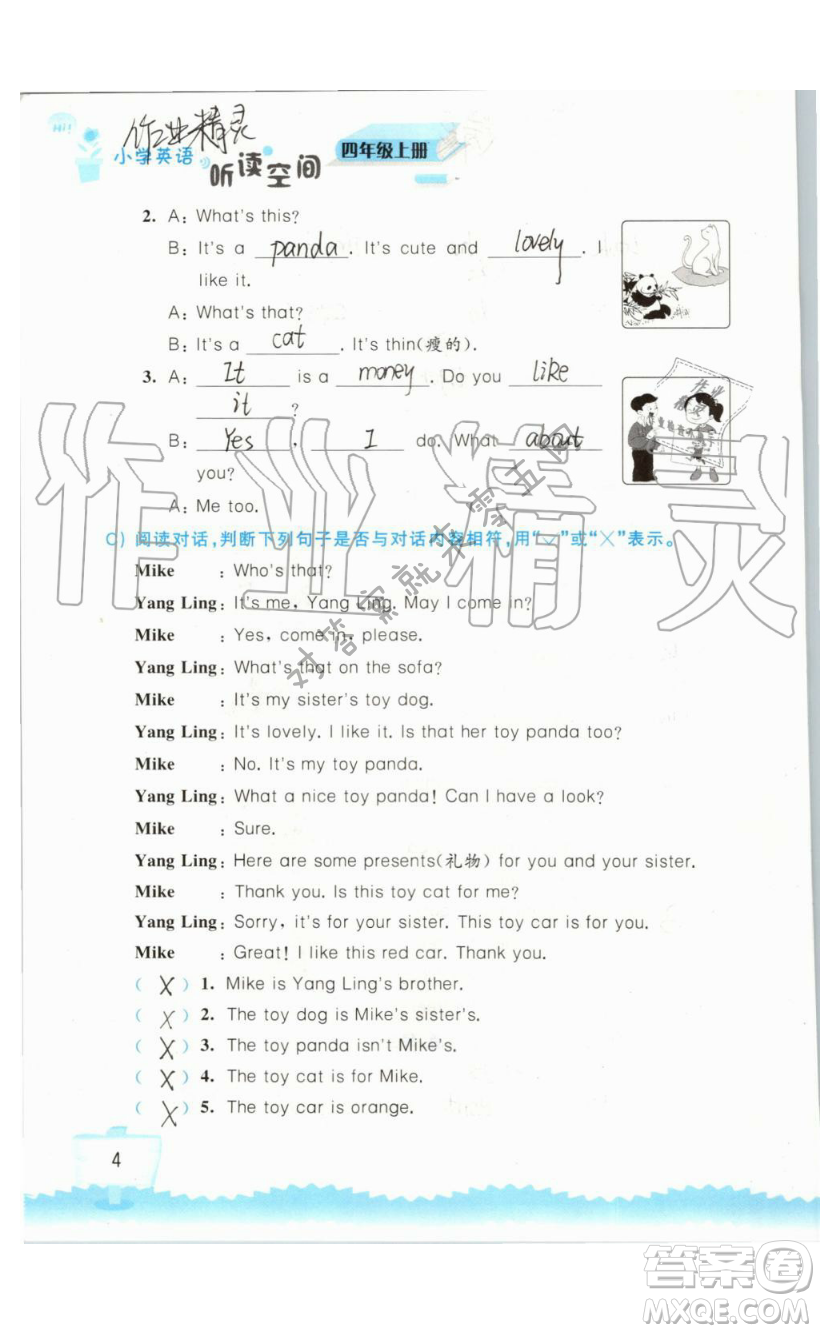 Hi!
作业精灵
小学英语
听读空间
四年级上册
2. A: What's this?
B: It's a panda. It's cute and lovely. I
like it.
A: What's that?
B: It's a cat. It's thin(瘦的).
3. A: It is a money. Do you like
it ?
B: Yes, I do. What about
you?
A: Me too.
C) 阅读对话,判断下列句子是否与对话内容相符,用“✓”或“×”表示。
Mike : Who's that?
Yang Ling: It's me, Yang Ling. May I come in?
Mike : Yes, come in, please.
Yang Ling: What's that on the sofa?
Mike : It's my sister's toy dog.
Yang Ling: It's lovely. I like it. Is that her toy panda too?
Mike : No. It's my toy panda.
Yang Ling: What a nice toy panda! Can I have a look?
Mike : Sure.
Yang Ling: Here are some presents(礼物) for you and your sister.
Mike : Thank you. Is this toy cat for me?
Yang Ling: Sorry, it's for your sister. This toy car is for you.
Mike : Great! I like this red car. Thank you.
( X ) 1. Mike is Yang Ling's brother.
( X ) 2. The toy dog is Mike's sister's.
( X ) 3. The toy panda isn't Mike's.
( X ) 4. The toy cat is for Mike.
( X ) 5. The toy car is orange.
4
作业精灵
对答案就来零五网
答案圈
MXQE.COM